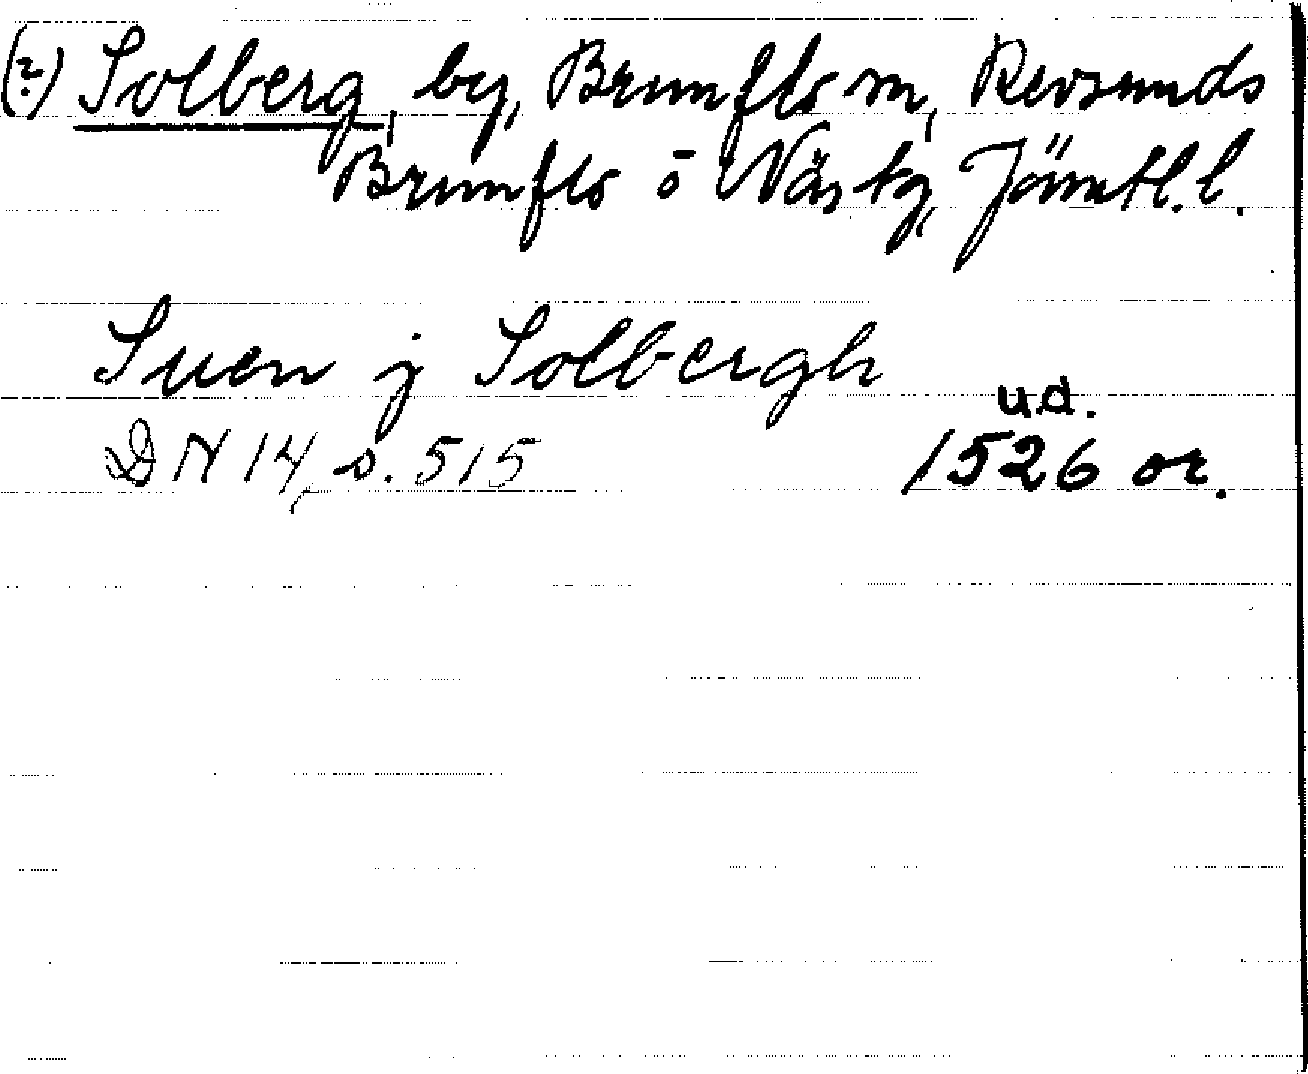 (?) Solberg, by, Brunflo sn, Revsunds
Brunflo o Näs tg, Jämtl. l.
Suen j Solbergh
u.d.
DN 14, s. 515 1526 or.